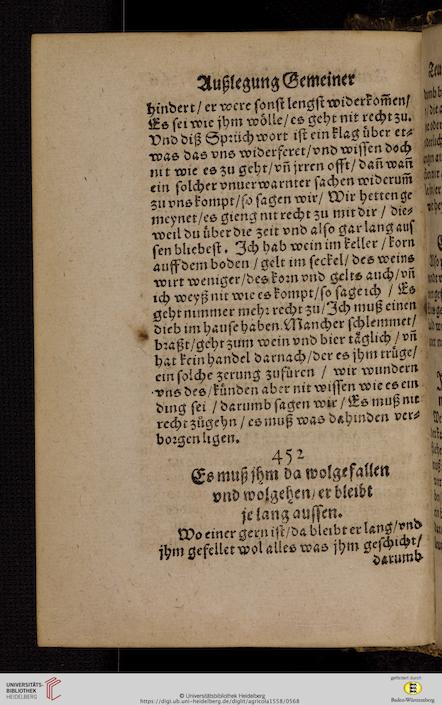 Außlegung Gemeiner
hindert / er were sonst lengst widerkom̃en /
Es sei wie jhm wölle / es geht nit recht zu.
Vnd diß Sprüchwort ist ein klag über et⸗
was das vns widerferet / vnd wissen doch
nit wie es zu geht / vñ jrren offt / dañ wañ
ein solcher vnuerwarnter sachen widerum̃
zu vns kompt / so sagen wir / Wir hetten ge
meynet / es gieng nit recht zu mit dir / die⸗
weil du über die zeit vnd also gar lang aus
sen bliebest. Jch hab wein im keller / korn
auff dem boden / gelt im seckel / des weins
wirt weniger / des korn vnd gelts auch / vñ
ich weyß nit wie es kompt / so sage ich / Es
geht nimmer mehr recht zu / Jch muß einen
dieb im hause haben. Mancher schlemmet /
braßt / geht zum wein vnd bier täglich / vñ
hat kein handel darnach / der es jhm trüge /
ein solche zerung zufüren / wir wundern
vns des / künden aber nit wissen wie es ein
ding sei / darumb sagen wir / Es muß nit
recht zügehn / es muß was dahinden ver⸗
borgen ligen.
452
Es muß jhm da wolgefallen
vnd wolgehen / er bleibt
je lang aussen.
Wo einer gern ist / da bleibt er lang / vnd
jhm gefellet wol alles was jhm geschicht /
darumb
UNIVERSITÄTS-
BIBLIOTHEK
HEIDELBERG
© Universitätsbibliothek Heidelberg
https://digi.ub.uni-heidelberg.de/diglit/agricola1558/0568
gefördert durch
Baden-Württemberg